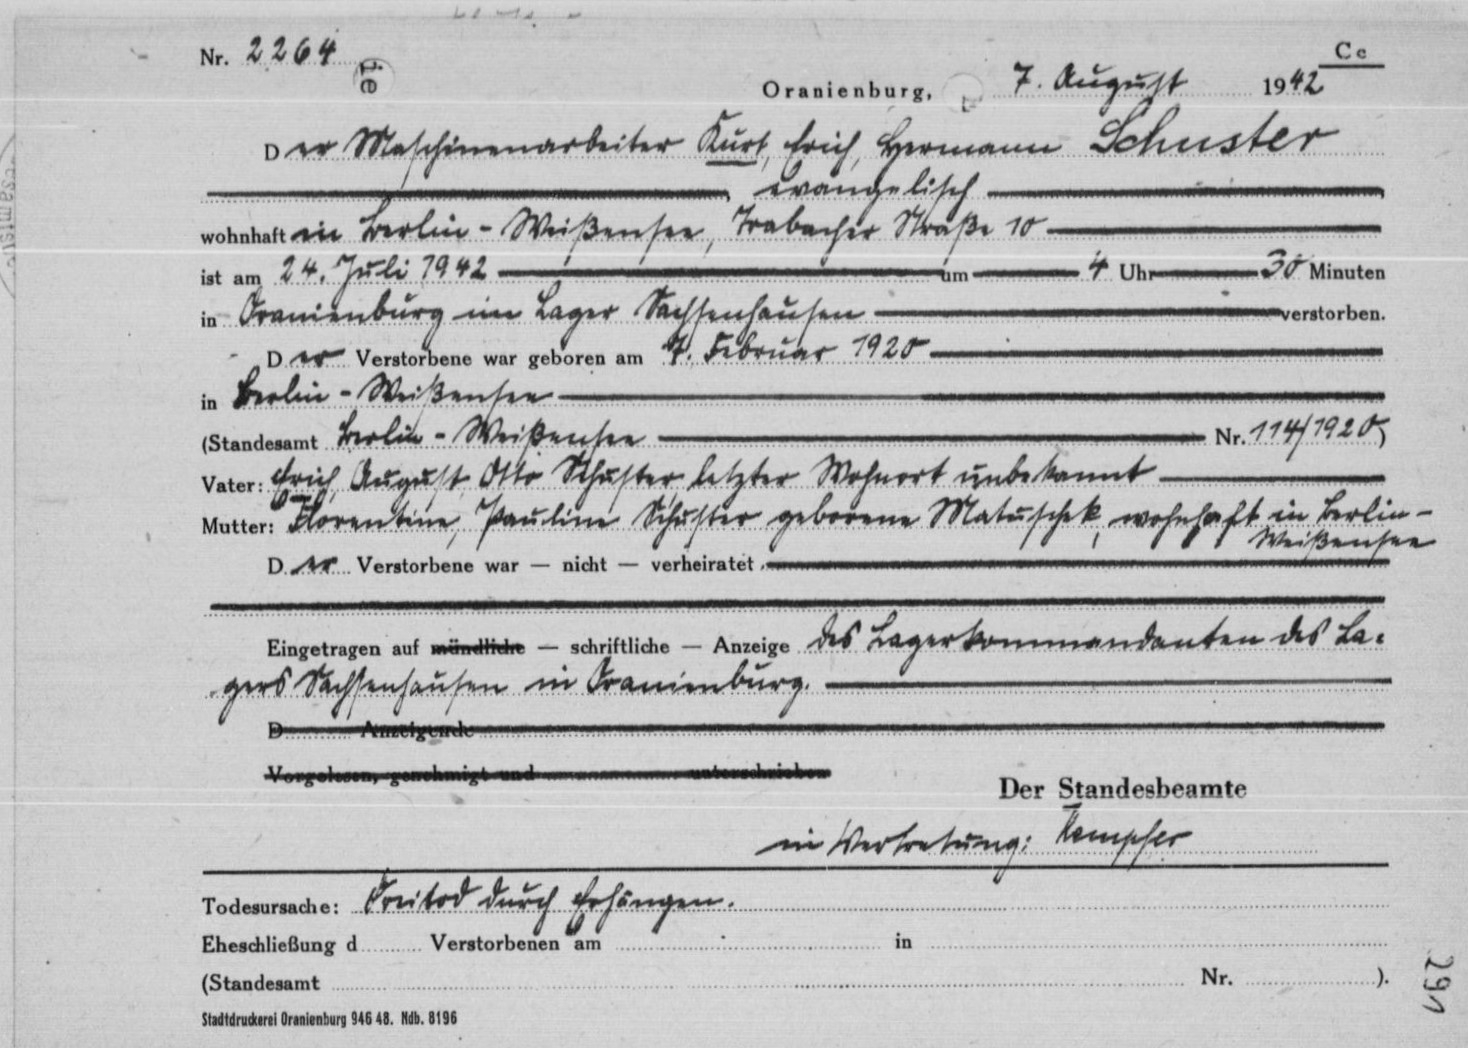 Nr. 2264
C c
Oranienburg, 7. August 1942
Der Maschinenarbeiter Kurt, Erich, Hermann Schuster
, evangelisch
wohnhaft in Berlin - Weißensee, Trabacher Straße 10
ist am 24. Juli 1942 um 4 Uhr 30 Minuten
in Oranienburg im Lager Sachsenhausen verstorben.
Der Verstorbene war geboren am 7. Februar 1920
in Berlin - Weißensee
(Standesamt Berlin - Weißensee Nr. 114/1920)
Vater: Erich, August, Otto Schuster letzter Wohnort unbekannt
Mutter: Florentine, Pauline Schuster geborene Matuschek, wohnhaft in Berlin-
Weißensee
Der Verstorbene war — nicht — verheiratet
Eingetragen auf mündliche — schriftliche — Anzeige des Lagerkommandanten des La=
gers Sachsenhausen in Oranienburg.
D Anzeigende
Vorgelesen, genehmigt und unterschrieben
Der Standesbeamte
in Vertretung:
Todesursache: Freitod durch Erhängen.
Eheschließung d Verstorbenen am in
(Standesamt Nr. ).
Stadtdruckerei Oranienburg 946 48. Ndb. 8196
291